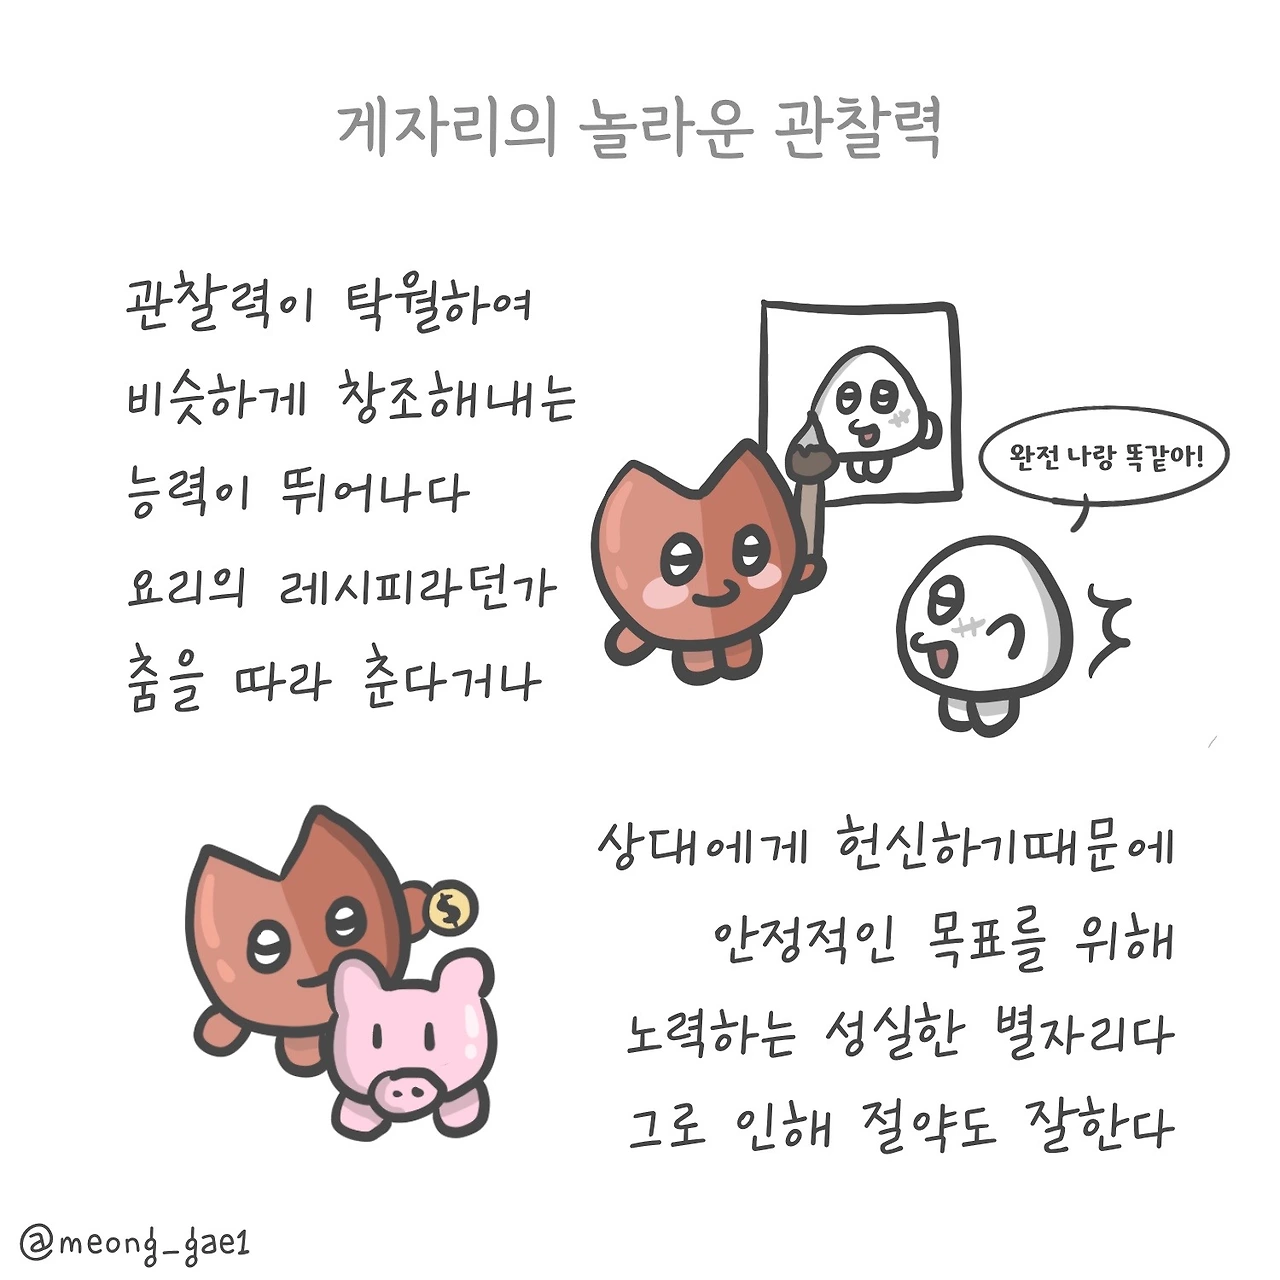 게자리의 놀라운 관찰력
관찰력이 탁월하여
비슷하게 창조해내는
능력이 뛰어나다
요리의 레시피라던가
춤을 따라 춘다거나
완전 나랑 똑같아!
$
상대에게 헌신하기때문에
안정적인 목표를 위해
노력하는 성실한 별자리다
그로 인해 절약도 잘한다
@meong_gae1